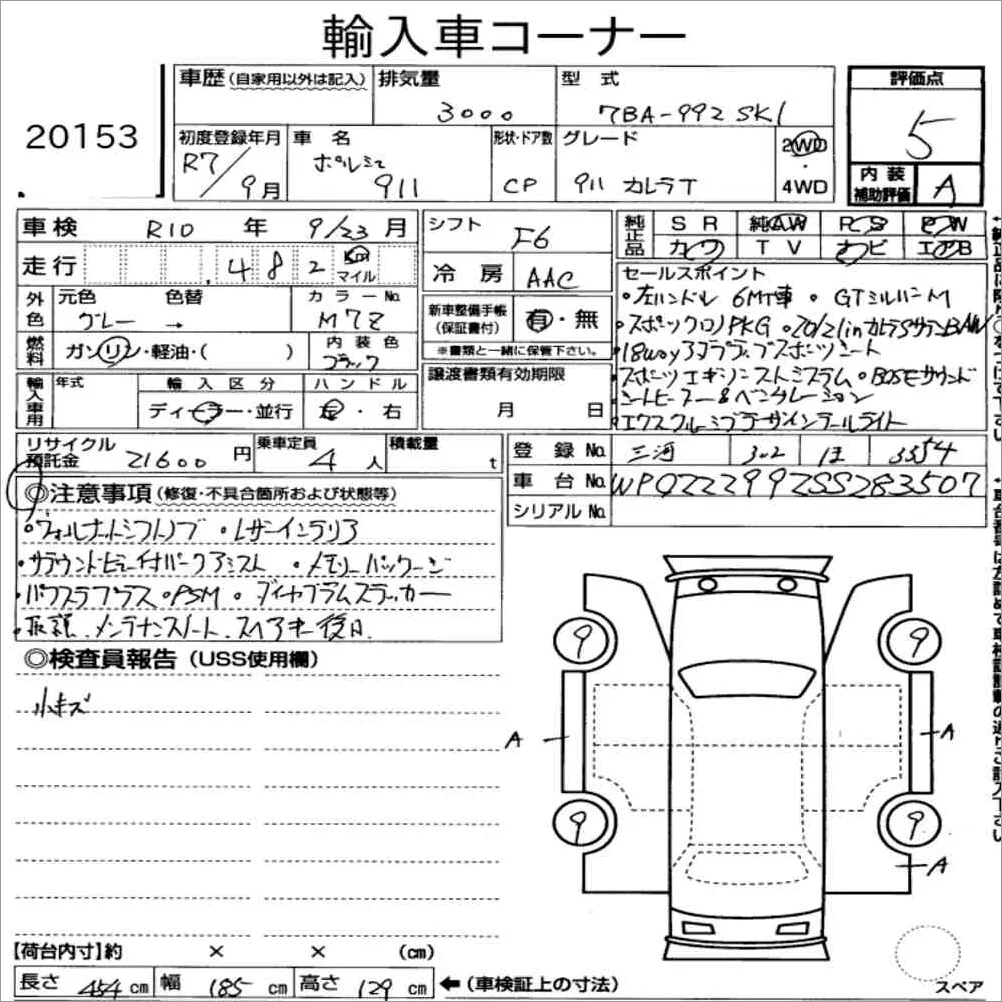 輸入車コーナー
20153
車歴（自家用以外は記入） 排気量 3000 型式 7BA-992SK1
評価点 5
初度登録年月 R7/9月 車名 ポルシェ 911 形状・ドア数 CP グレード 911 カレラT 2WD・4WD
内装補助評価 A
車検 R10年 9/23月 シフト F6
純正品 SR 純AW PS PW
カワ TV ナビ エアB
走行 482 km マイル 冷房 AAC
外色 元色 グレー 色替 → カラーNo. M7Z
新車整備手帳（保証書付） 有・無
※書類と一緒に保管下さい。
燃料 ガソリン・軽油・（ ） 内装色 ブラック
輸入車用 年式 輸入区分 ディーラー・並行 ハンドル 左・右
譲渡書類有効期限 月 日
セールスポイント
・左ハンドル 6MT車 ・GTシルバーM
・スポーツクロノPKG ・20/21inカレラSサテンBAW
・18wayアダプティブスポーツシート
スポーツエキゾーストシステム・BOSEサウンド
シートヒーター&ベンチレーション
エクスクルーシブデザインテールライト
リサイクル預託金 21600円 乗車定員 4人 積載量 t
登録No. 三河 302 ほ
車台No. WP0ZZZ99ZSS283507
シリアルNo.
◎注意事項（修復・不具合箇所および状態等）
・ウォールナットシフトノブ ・レザーインテリア
・サラウンドビュー付パークアシスト ・メモリーパッケージ
・パワステプラス・PSM ・ダイヤフラムステッカー
・取説、メンテナンスノート、スペアキー後日
◎検査員報告（USS使用欄）
小キズ
9 9
A A
9 9
A
【荷台内寸】約 × × （cm）
長さ 454cm 幅 185cm 高さ 129cm ←（車検証上の寸法）
スペア